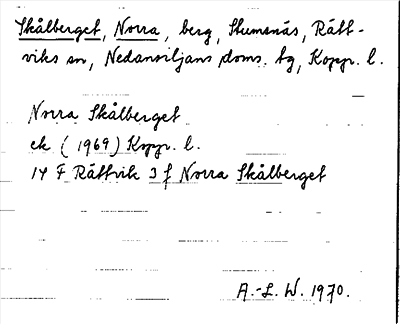 Skålberget, Norra, berg, Stumsnäs, Rätt-
viks sn, Nedansiljans doms. tg, Koppr. l.
Norra Skålberget
ek (1969) Koppr. l.
14 F Rättvik 3 f Norra Skålberget
A.-L. W. 1970.